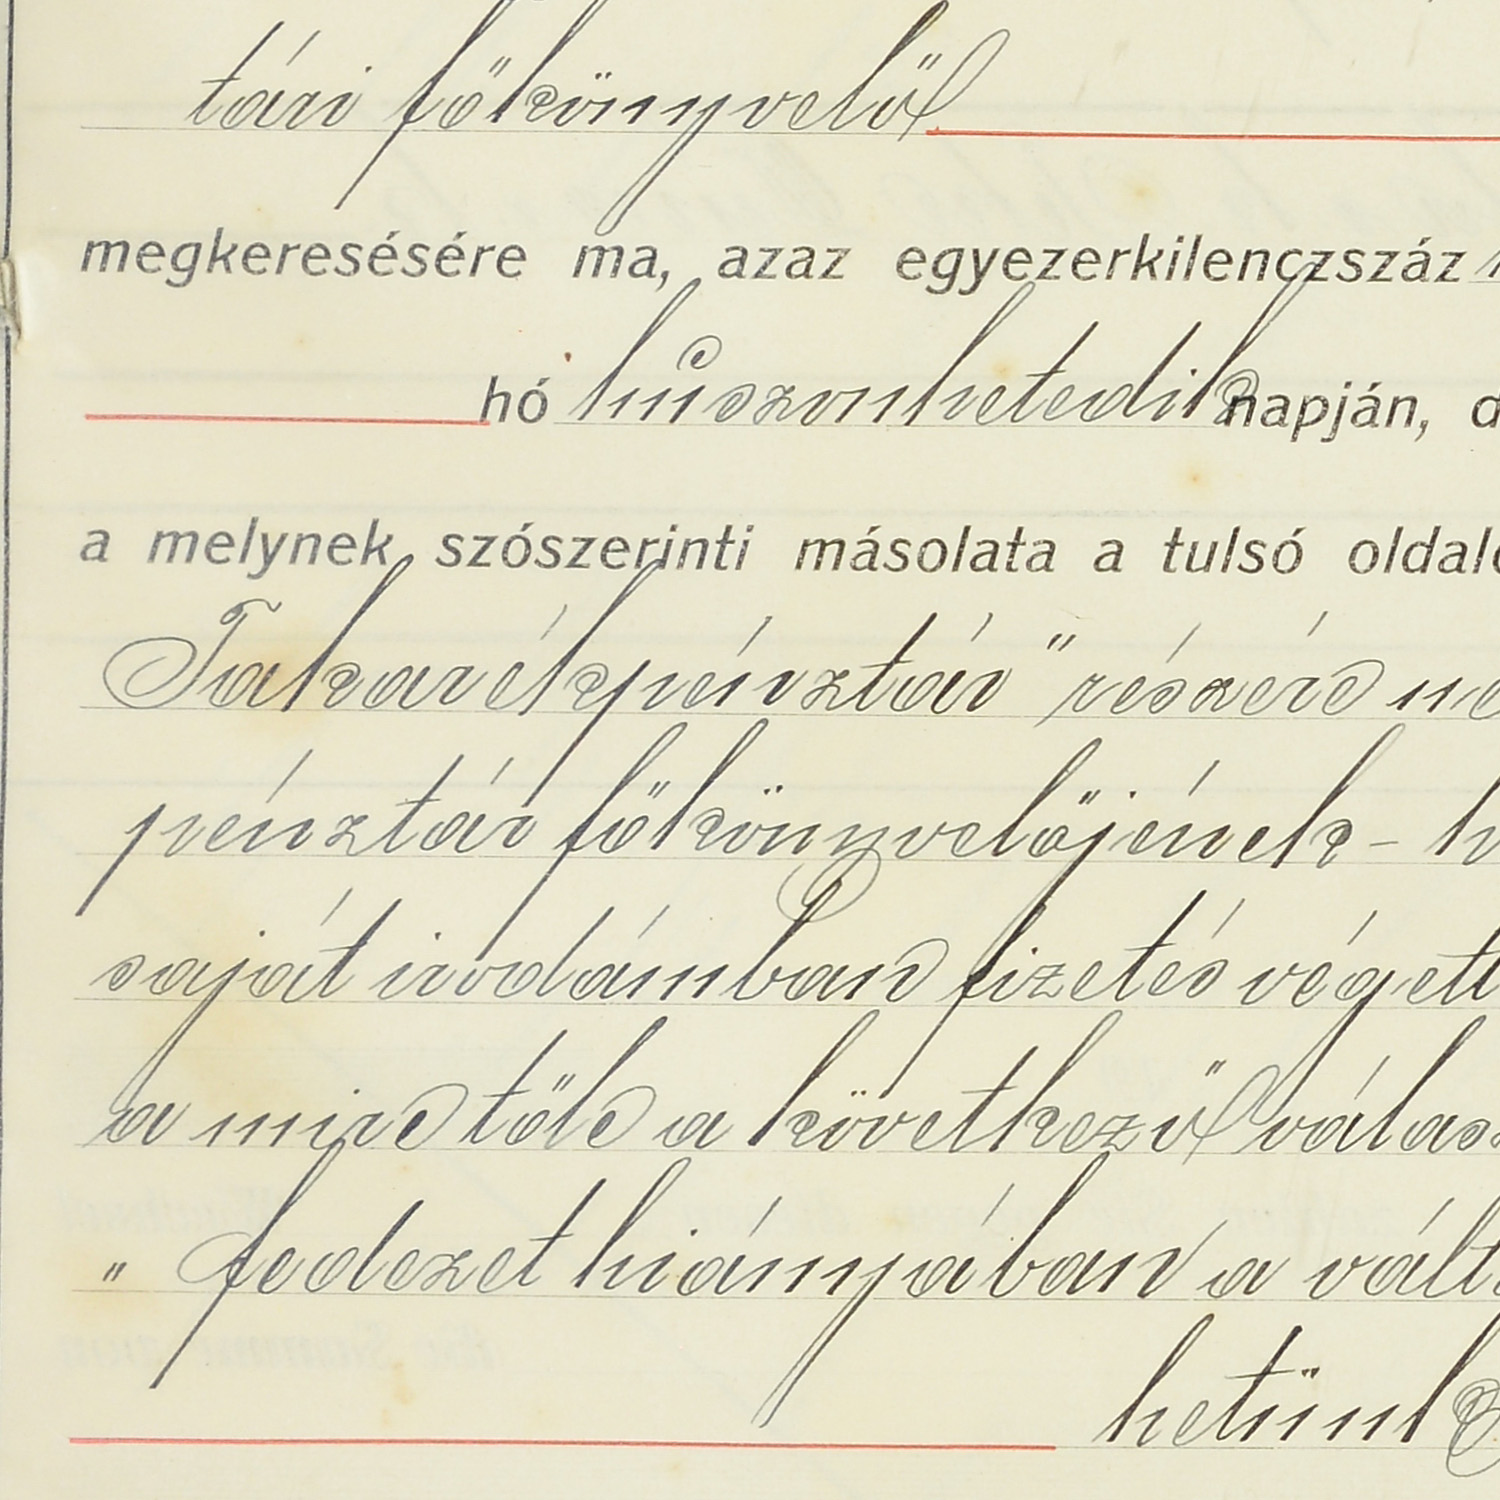 tári főkönyvelő
megkeresésére ma, azaz egyezerkilenczszáz
hó huszonhetedik napján,
a melynek szószerinti másolata a tulsó
Takarékpénztár" részére
pénztár főkönyvelőjének -
saját irodámban fizetés végett
a mire tőle a következő
„ fedezet hiányában a
hetünk